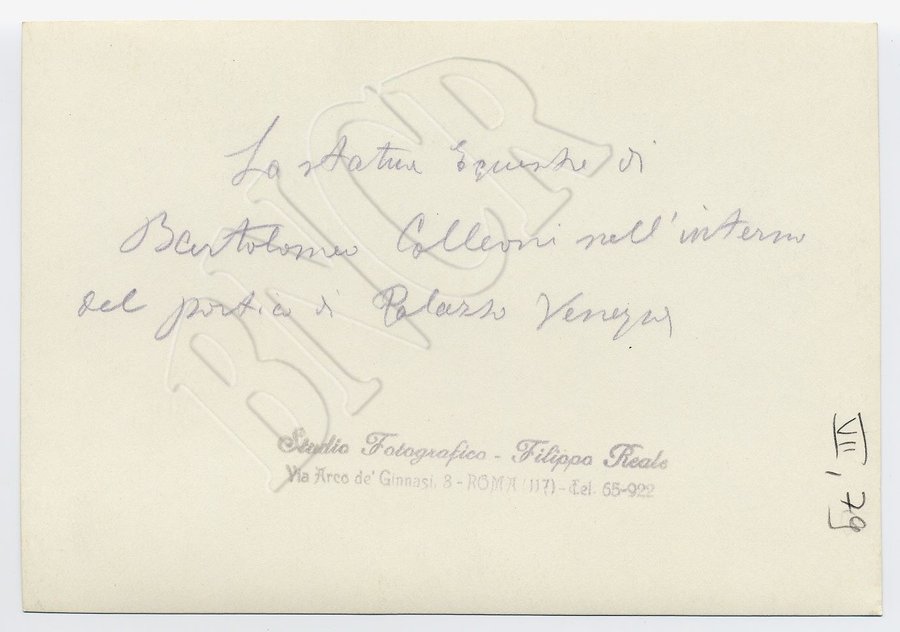 La statua Equestre di
Bartolomeo Colleoni nell'interno
del portico di Palazzo Venezia
Studio Fotografico - Filippo Reale
Via Arco de' Ginnasi, 8 - ROMA (117) - Tel. 65-922
VIII, 79
BNCR